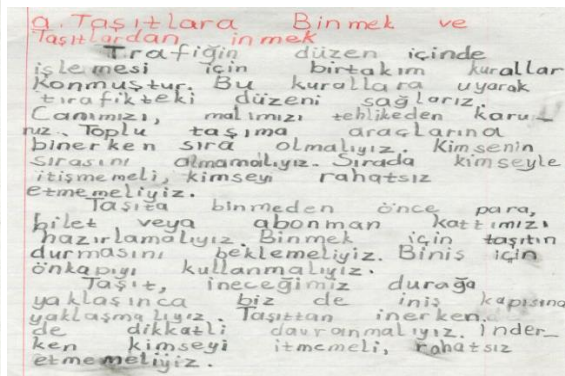 a. Taşıtlara Binmek ve
Taşıtlardan inmek
Trafiğin düzen içinde
işlemesi için birtakım kurallar
Konmuştur. Bu kurallara uyarak
tırafikteki düzeni sağlarız.
Canımızı, malımızı tehlikeden koru_
ruz. Toplu taşıma araçlarına
binerken sıra olmalıyız. Kimsenin
sırasını almamalıyız. Sırada kimseyle
itişmemeli, kimseyi rahatsız
etmemeliyiz.
Taşıta binmeden önce para,
bilet veya abonman kattımızı
hazırlamalıyız. Binmek için taşıtın
durmasını beklemeliyiz. Biniş için
önkapıyı kullanmalıyız.
Taşıt, ineceğimiz durağa
yaklaşınca biz de iniş kapısına
yaklaşmalıyız. Taşıttan inerken.
de dikkatli davranmalıyız. İnder_
ken kimseyi itmemeli, rahatsız
etmemeliyiz.